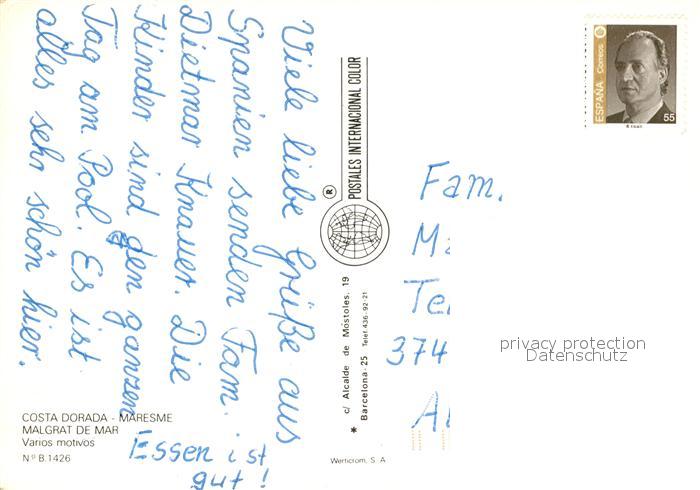 Viele liebe Grüße aus
Spanien senden Fam.
Dietmar Knauer. Die
Kinder sind den ganzen
Tag am Pool. Es ist
alles sehr schön hier.
Essen ist
gut!
COSTA DORADA - MARESME
MALGRAT DE MAR
Varios motivos
Nº B.1426
® POSTALES INTERNACIONAL COLOR
c/ Alcalde de Móstoles, 19
* Barcelona-25 Telef. 436-92-21
Werticrom, S. A
ESPAÑA Correos
55
Fam.
Ma
Te
374
privacy protection
Datenschutz